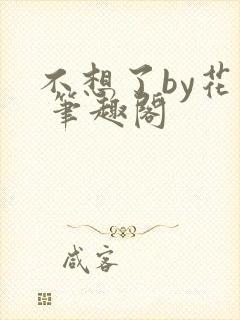 不想了by花
筆趣閣
咸客